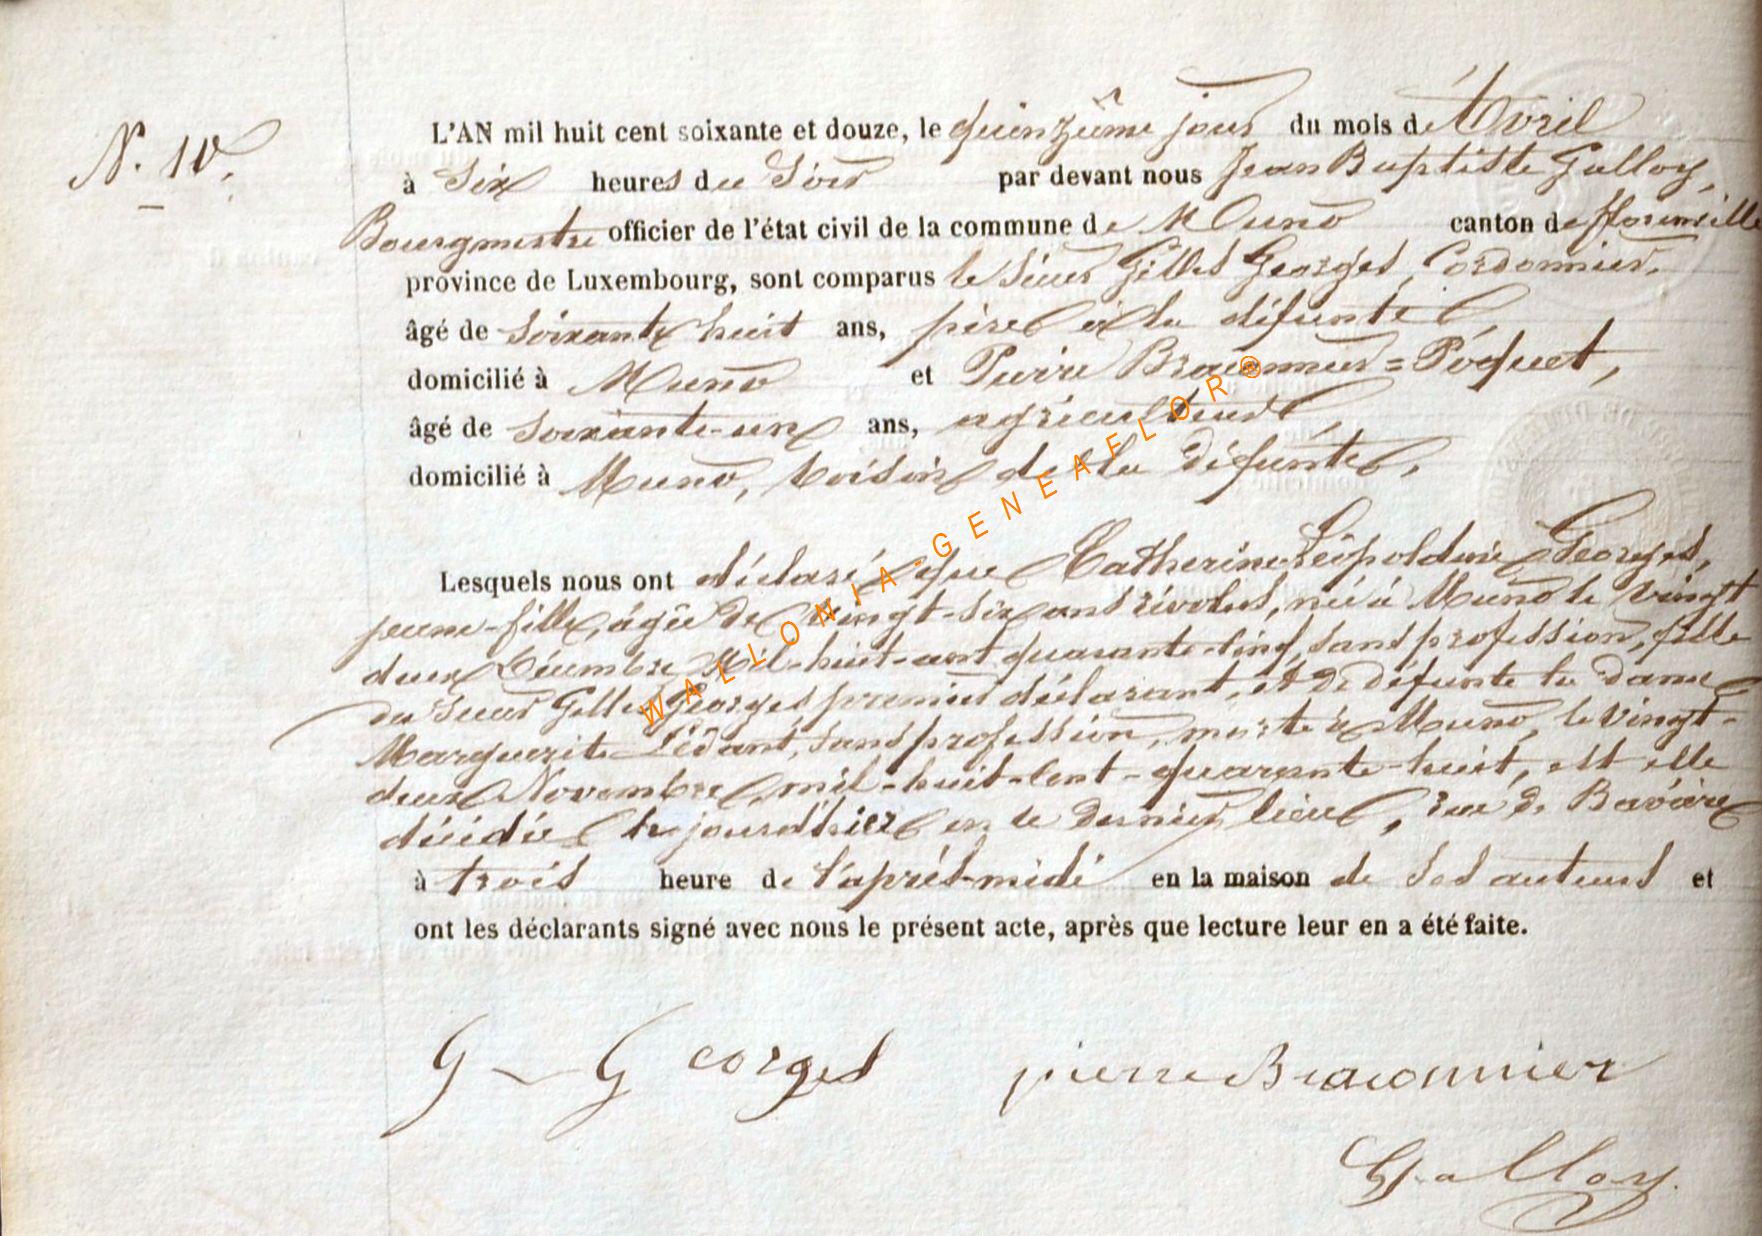 N. 10.
L'AN mil huit cent soixante et douze, le quinzième jour du mois de Avril
à Six heures du Soir par devant nous Jean Baptiste Galloy,
Bourgmestre officier de l'état civil de la commune de Muno canton de florenville
province de Luxembourg, sont comparus le sieur Gilles Georges, Cordonnier,
âgé de soixante huit ans, père à la défunte
domicilié à Muno et Pierre Braconnier = Poquet,
âgé de soixante-un ans, agriculteur,
domicilié à Muno, voisin de la défunte,
Lesquels nous ont déclaré que Catherine Léopoldine Georges,
jeune-fille, agée de vingt-six ans révolus, née à Muno le vingt
deux Décembre Mil-huit-cent quarante-cinq, sans profession, fille
du sieur Gilles Georges premier déclarant, et de défunte la dame
Marguerite Lédant, sans profession, morte à Muno, le vingt-
deux Novembre, mil-huit-cent-quarante-huit, est elle
décédée jourd'hier en ce dernier lieu, rue de Bavière
à trois heure de l'après-midi en la maison de ses auteurs et
ont les déclarants signé avec nous le présent acte, après que lecture leur en a été faite.
G Georges pierre Braconnier
Galloy
WALLONIA-GENEAFLOR®